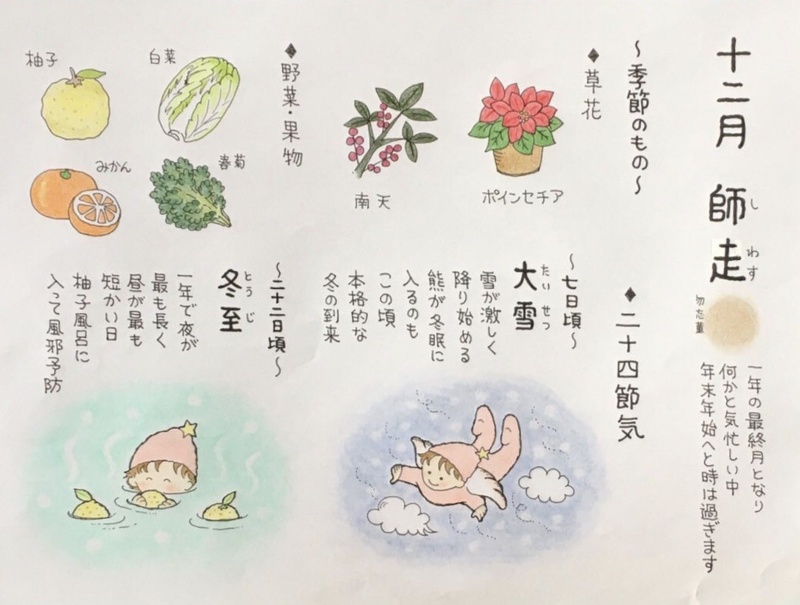 十二月 師走
しわす
勿忘菫
一年の最終月となり
何かと気忙しい中
年末年始へと時は過ぎます
〜季節のもの〜
◆草花
ポインセチア
南天
◆野菜・果物
白菜
柚子
春菊
みかん
◆二十四節気
〜七日頃〜
大雪
たいせつ
雪が激しく
降り始める
熊が冬眠に
入るのも
この頃
本格的な
冬の到来
〜二十二日頃〜
冬至
とうじ
一年で夜が
最も長く
昼が最も
短かい日
柚子風呂に
入って風邪予防